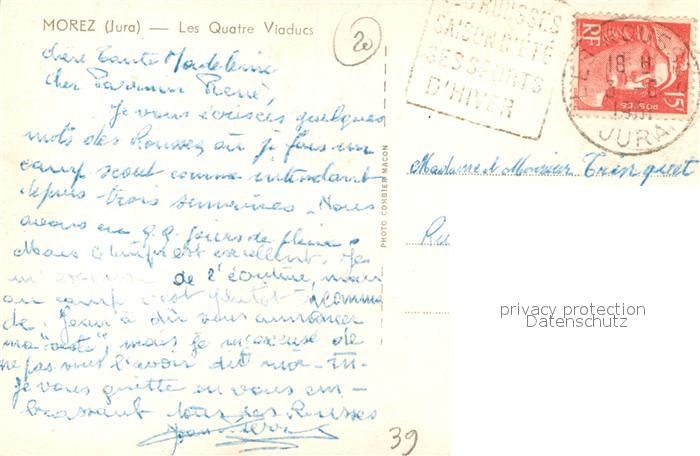 MOREZ (Jura) — Les Quatre Viaducs
20
chère Tante Madeleine
cher Parrain Pierre,
Je vous écris ces quelques
mots des Rousses où je fais un
camp scout comme intendant
depuis trois semaines. Nous
avons eu q.q. jours de pluie.
Mais le temps est excellent. Je
m'excuse de l'écriture, mais
au camp c'est plutôt
de. Jean a dû vous annoncer
ma "veste", mais je m'excuse de
ne pas vous l'avoir dit
Je vous quitte en vous em-
brassant tous. Les Rousses
PHOTO COMBIER MACON
LES ROUSSES
SAISON D'ÉTÉ
SES SPORTS
D'HIVER
18 H
JURA
RF
15F
POSTES
Madame et Monsieur Trinquet
Ru
privacy protection
Datenschutz
39